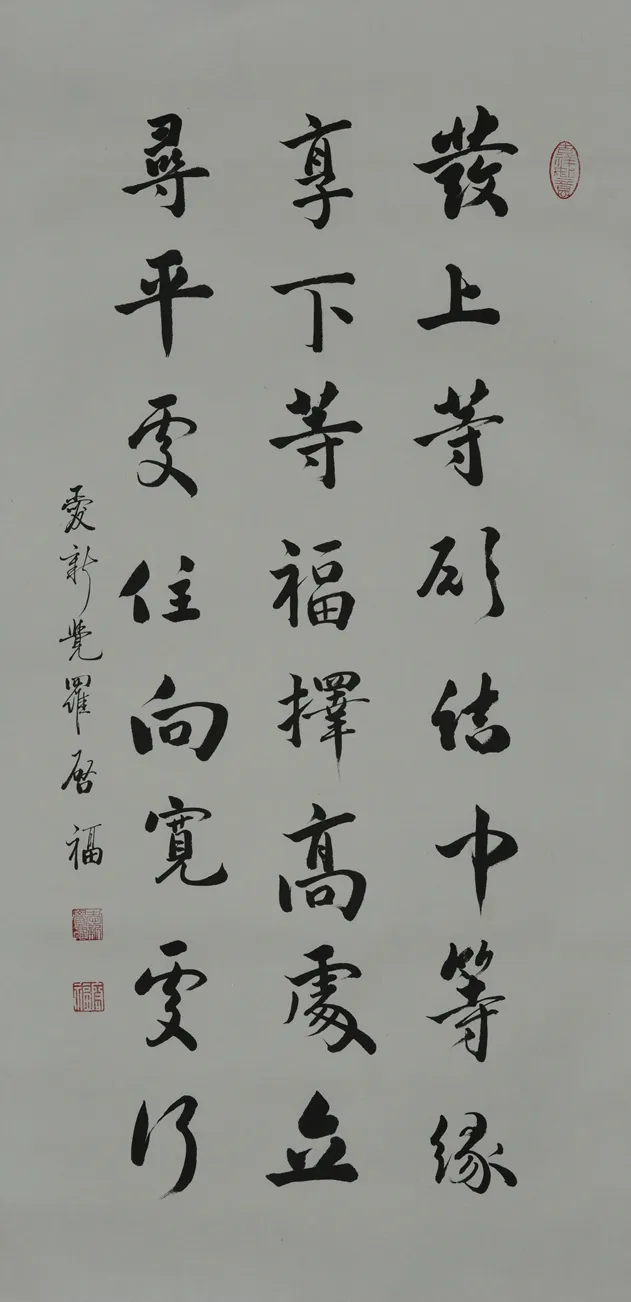 發上等願結中等緣
享下等福擇高處立
尋平處住向寬處行
愛新覺羅啟福